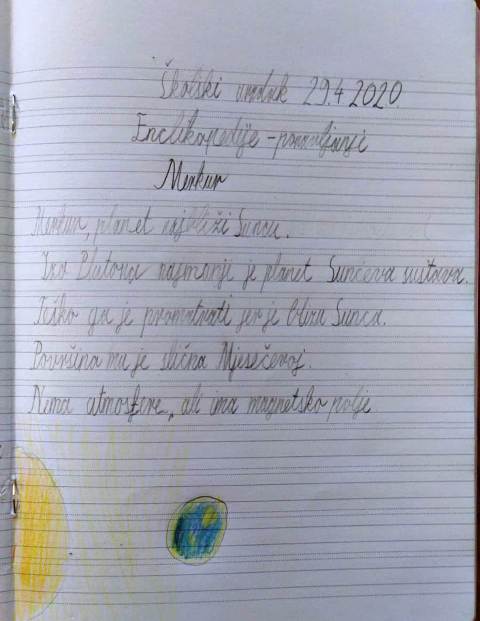 Školski uradak 29.4.2020.
Enciklopedije - ponavljanje
Merkur
Merkur, planet najbliži Suncu.
Iza Plutona najmanji je planet Sunčeva sustava.
Teško ga je promatrati jer je blizu Sunca.
Površina mu je slična Mjesečevoj.
Nema atmosfere, ali ima magnetsko polje